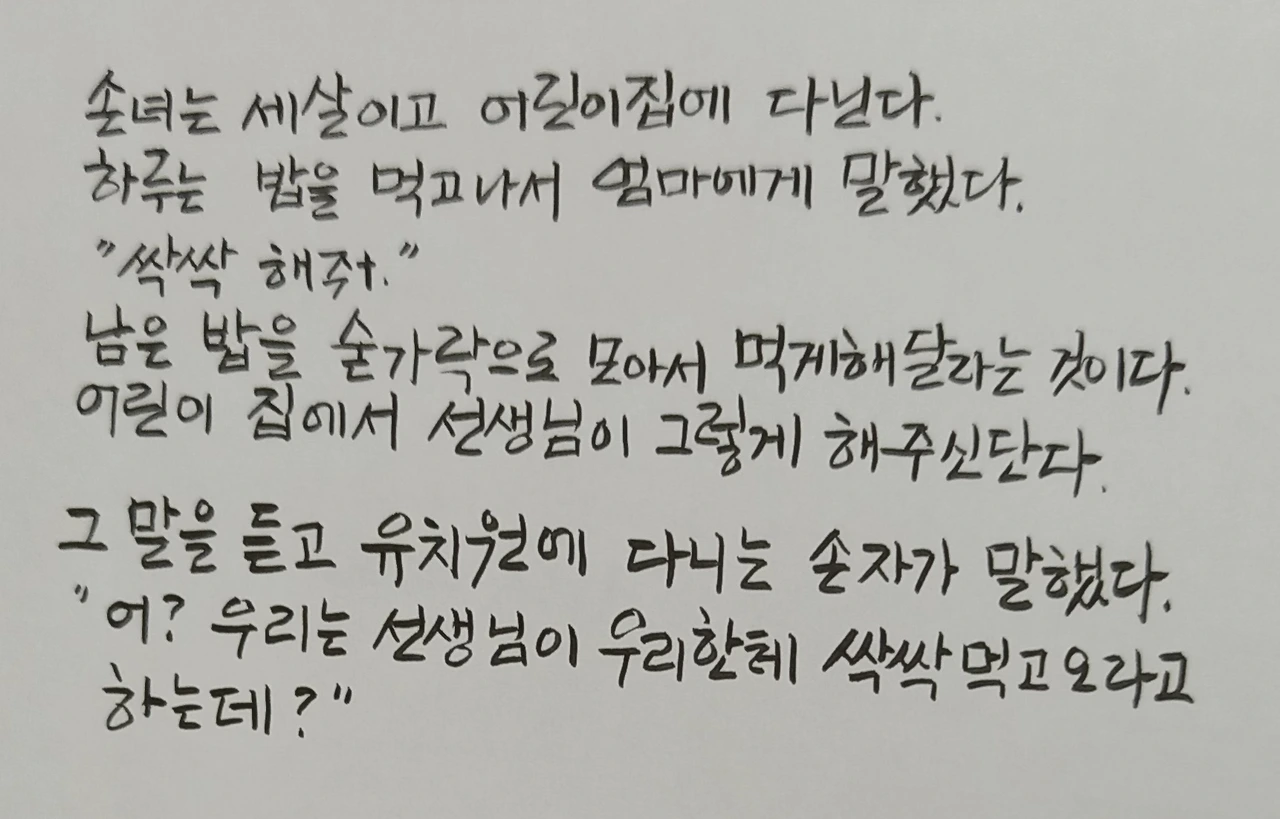 손녀는 세살이고 어린이집에 다닌다.
하루는 밥을 먹고나서 엄마에게 말했다.
"싹싹 해주ㅏ."
남은 밥을 숟가락으로 모아서 먹게해달라는 것이다.
어린이 집에서 선생님이 그렇게 해주신단다.
그 말을 듣고 유치원에 다니는 손자가 말했다.
"어? 우리는 선생님이 우리한테 싹싹먹고오라고
하는데?"